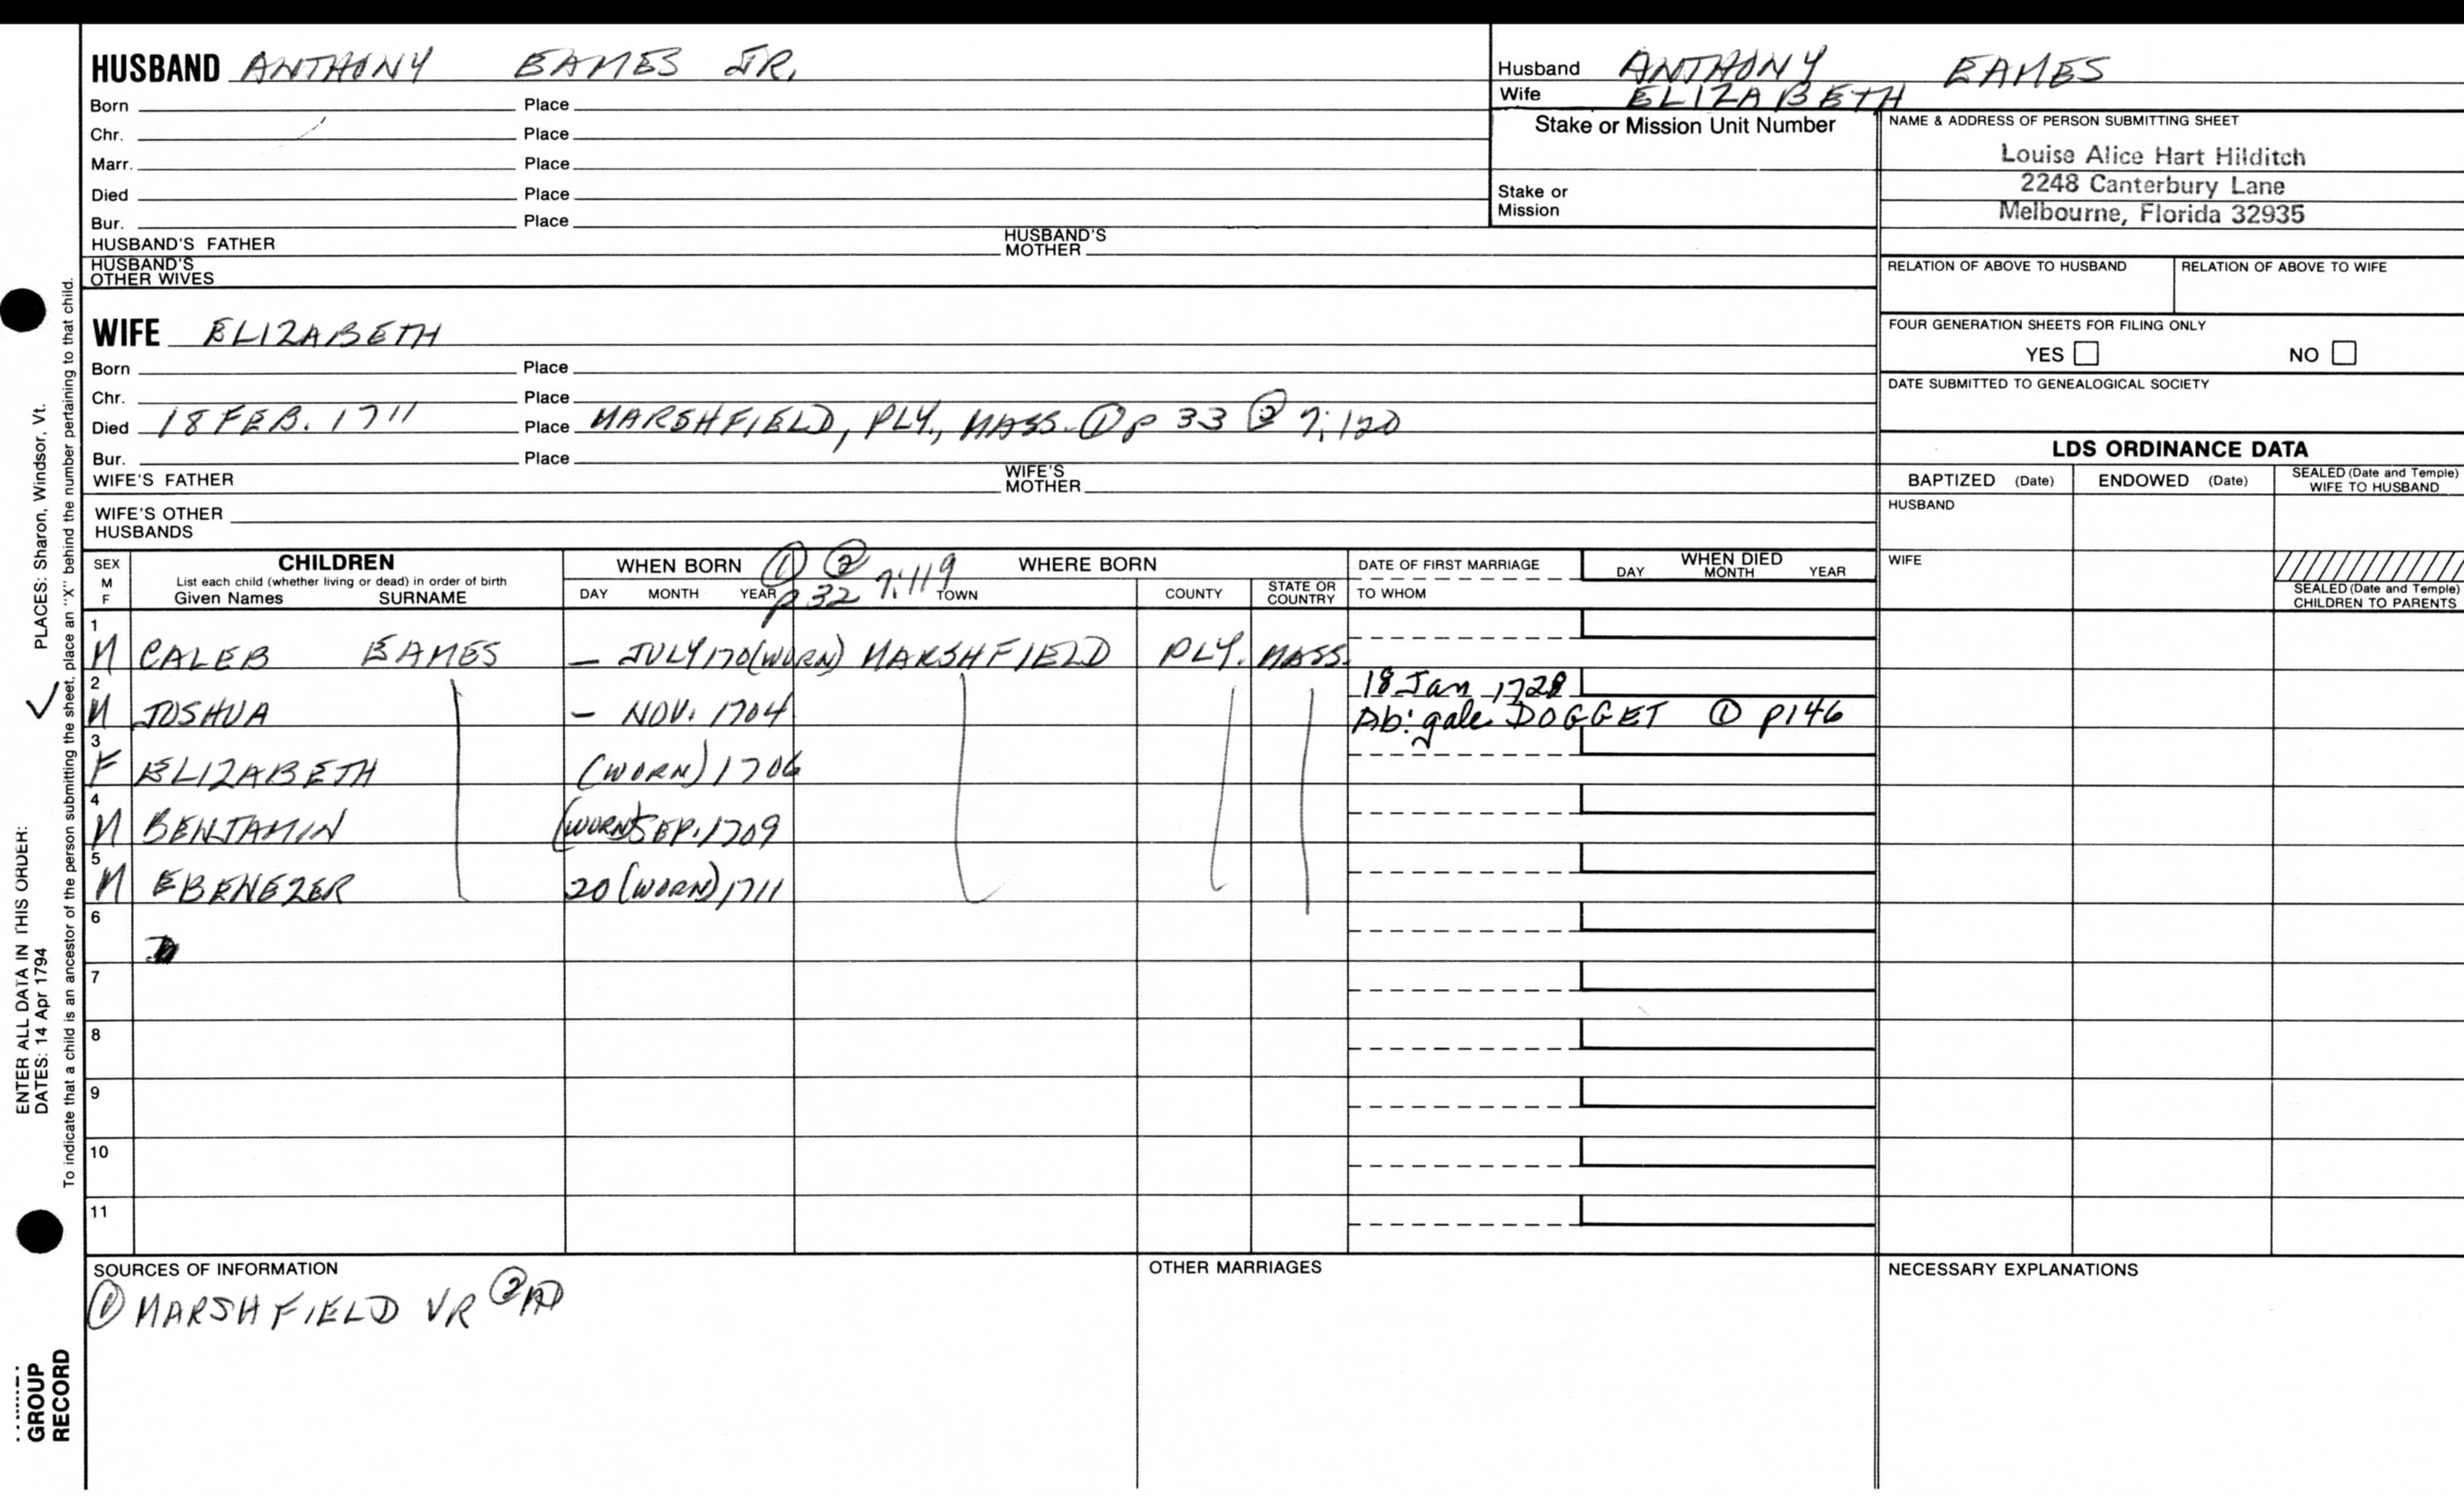 HUSBAND ANTHONY EAMES JR.
Born Place
Chr. Place
Marr. Place
Died Place
Bur. Place
HUSBAND'S FATHER HUSBAND'S MOTHER
HUSBAND'S OTHER WIVES
Husband ANTHONY EAMES
Wife ELIZABETH
Stake or Mission Unit Number
Stake or Mission
NAME & ADDRESS OF PERSON SUBMITTING SHEET
Louise Alice Hart Hilditch
2248 Canterbury Lane
Melbourne, Florida 32935
RELATION OF ABOVE TO HUSBAND RELATION OF ABOVE TO WIFE
FOUR GENERATION SHEETS FOR FILING ONLY
YES NO
DATE SUBMITTED TO GENEALOGICAL SOCIETY
WIFE ELIZABETH
Born Place
Chr. Place
Died 18 FEB. 1711 Place MARSHFIELD, PLY., MASS. ① p 33 ② 7:120
Bur. Place
WIFE'S FATHER WIFE'S MOTHER
WIFE'S OTHER HUSBANDS
LDS ORDINANCE DATA
BAPTIZED (Date) ENDOWED (Date) SEALED (Date and Temple) WIFE TO HUSBAND
HUSBAND
WIFE
SEALED (Date and Temple) CHILDREN TO PARENTS
SEX M F
CHILDREN
List each child (whether living or dead) in order of birth
Given Names SURNAME
WHEN BORN ① ② WHERE BORN
DAY MONTH YEAR p 32 7:119 TOWN COUNTY STATE OR COUNTRY
DATE OF FIRST MARRIAGE
TO WHOM
WHEN DIED
DAY MONTH YEAR
1
M CALEB EAMES – JULY 170(WORN) MARSHFIELD PLY. MASS.
2 18 Jan 1728
M JOSHUA – NOV. 1704 Abigale DOGGET ① p146
3
F ELIZABETH (WORN) 1706
4
M BENJAMIN (WORN) SEP. 1709
5
M EBENEZER 20 (WORN) 1711
6
7
8
9
10
11
SOURCES OF INFORMATION
① MARSHFIELD VR ②
OTHER MARRIAGES
NECESSARY EXPLANATIONS
ENTER ALL DATA IN THIS ORDER:
DATES: 14 Apr 1794 PLACES: Sharon, Windsor, Vt.
To indicate that a child is an ancestor of the person submitting the sheet, place an "X" behind the number pertaining to that child.
GROUP
RECORD